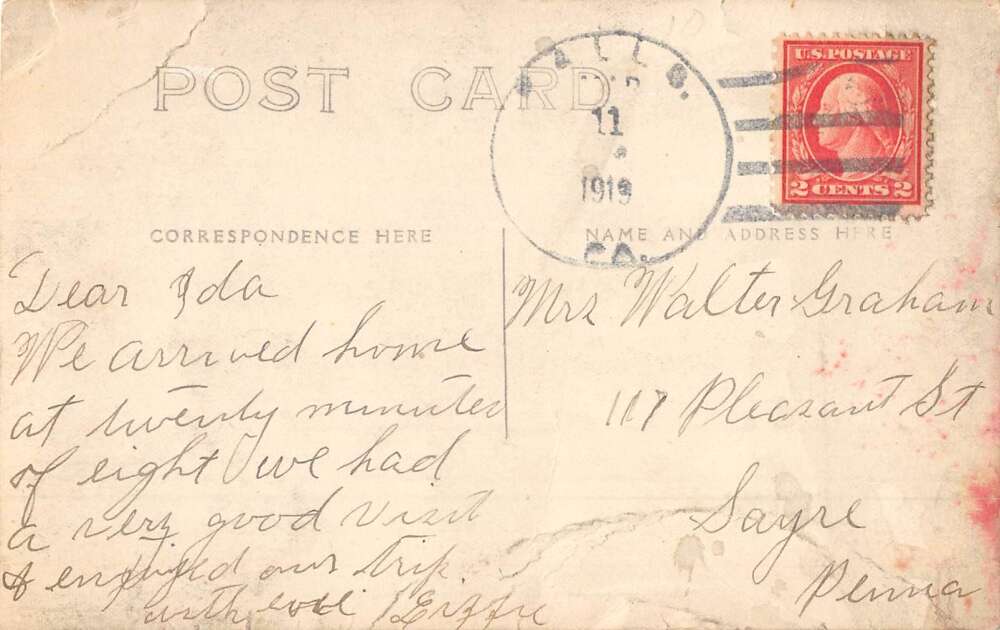 POST CARD
11
1919
PA.
U.S. POSTAGE
2 CENTS 2
CORRESPONDENCE HERE
NAME AND ADDRESS HERE
Dear Ida
We arrived home
at twenty minutes
of eight we had
a very good visit
& enjoyed our trip.
with love
Mrs Walter Graham
117 Pleasant St
Sayre
Penna